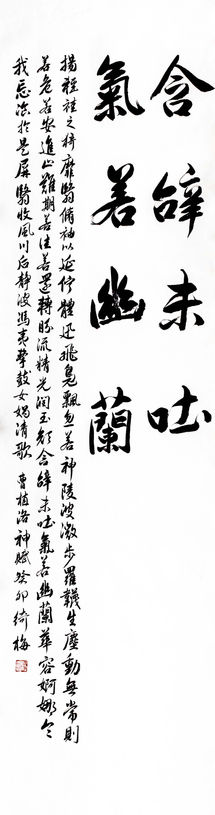 含辭未吐
氣若幽蘭
揚輕袿之猗靡翳脩袖以延佇體迅飛鳧飄忽若神陵波微步羅韈生塵動無常則
若危若安進止難期若往若還轉眄流精光潤玉顏含辭未吐氣若幽蘭華容婀娜令
我忘湌於是屏翳收風川后靜波馮夷擊鼓女媧清歌 曹植洛神賦癸卯綺梅